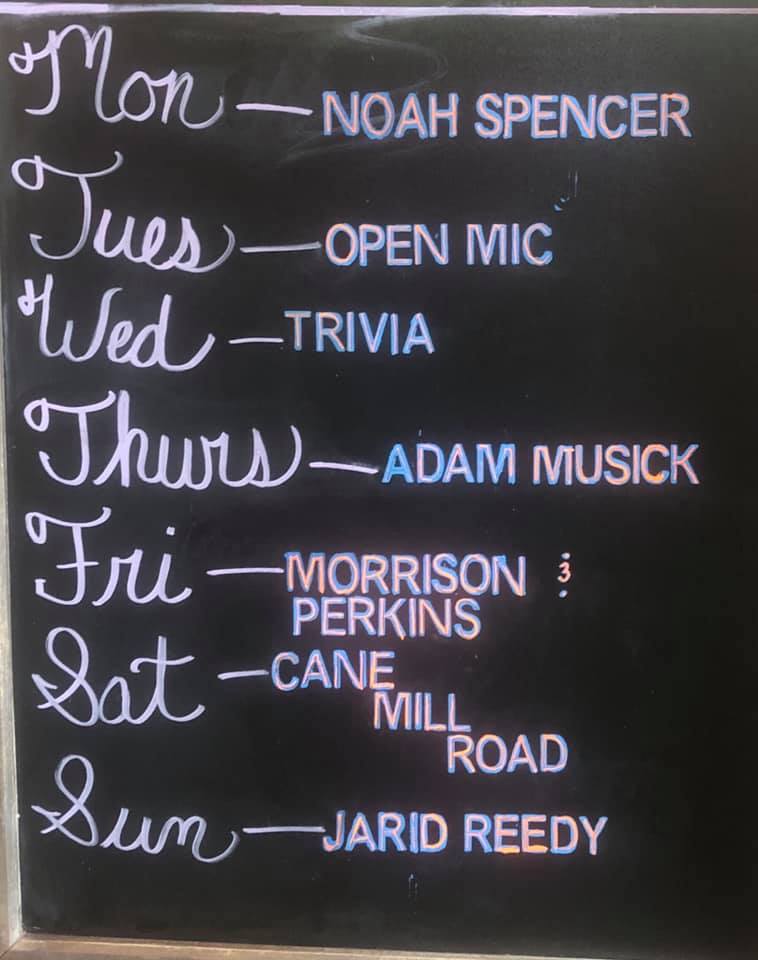 Mon — NOAH SPENCER
Tues — OPEN MIC
Wed — TRIVIA
Thurs — ADAM MUSICK
Fri — MORRISON &
PERKINS
Sat — CANE
MILL
ROAD
Sun — JARID REEDY